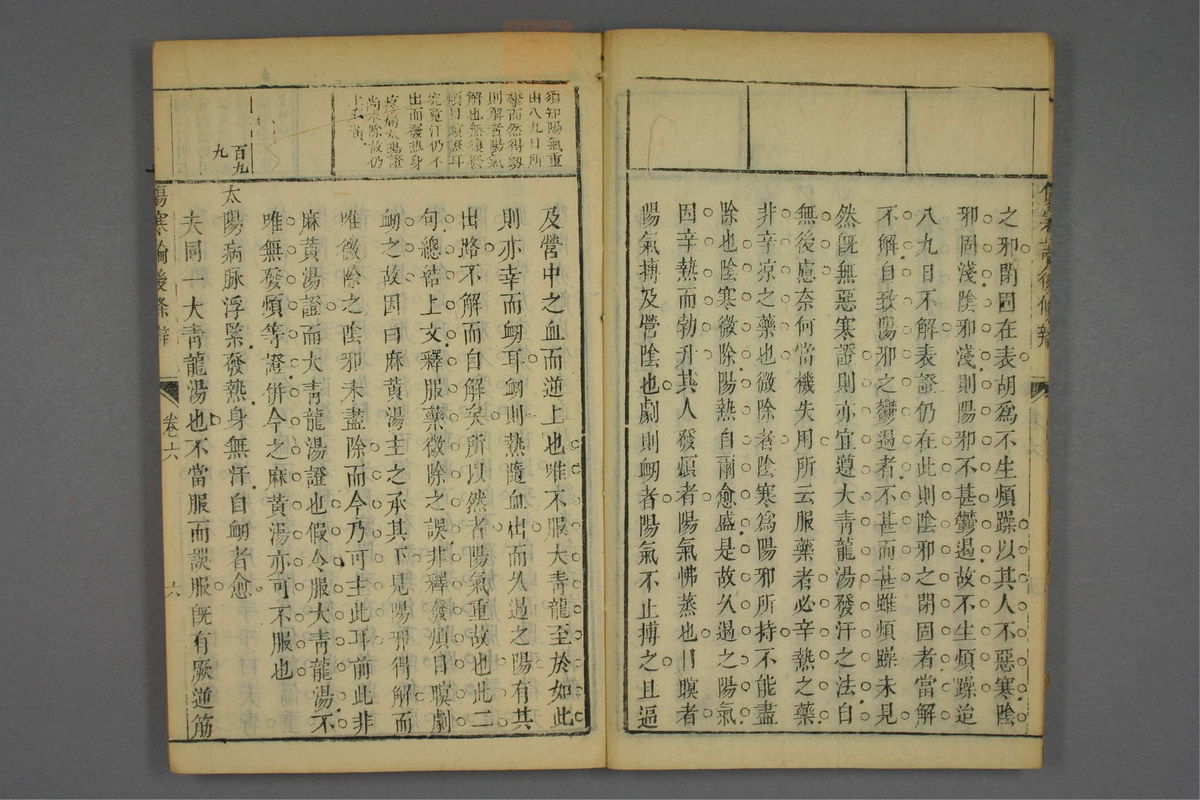 之邪閉固在表胡爲不生煩躁以其人不惡寒陰
邪固淺陰邪淺則陽邪不甚鬱遏故不生煩躁迨
八九日不解表證仍在此則陰邪之閉固者當解
不解自致陽邪之鬱遏者不甚而甚雖煩躁未見
然旣無惡寒證則亦宜遵大青龍湯發汗之法自
無後慮奈何當機失用所云服藥者必辛熱之藥
非辛凉之藥也微除者陰寒爲陽邪所持不能盡
除也陰寒微除陽熱自爾愈盛是故久遏之陽氣
因辛熱而勃升其人發煩者陽氣怫蒸也目瞑者
陽氣搏及營陰也劇則衄者陽氣不止搏之且逼
須知陽氣重
由八九日所
鬱而然得衄
則解者陽氣
解也無復發
煩目瞑證耳
究竟汗仍不
出而發熱身
疼痛太陽證
尚未除故仍
主云云
及營中之血而逆上也唯不服大青龍至於如此
則亦幸而衄耳衄則熱隨血出而久遏之陽有其
出路不解而自解矣所以然者陽氣重故也此二
句總結上文釋服藥微除之誤非釋發煩目瞑劇
衄之故因曰麻黃湯主之承其下見陽邪得解而
唯微除之陰邪未盡除而今乃可主此耳前此非
麻黃湯證而大青龍湯證也假令服大青龍湯不
唯無發煩等證併今之麻黃湯亦可不服也
百九
九
太陽病脉浮緊發熱身無汗自衄者愈
夫同一大青龍湯也不當服而誤服旣有厥逆筋
傷寒論後條辨
卷六
六